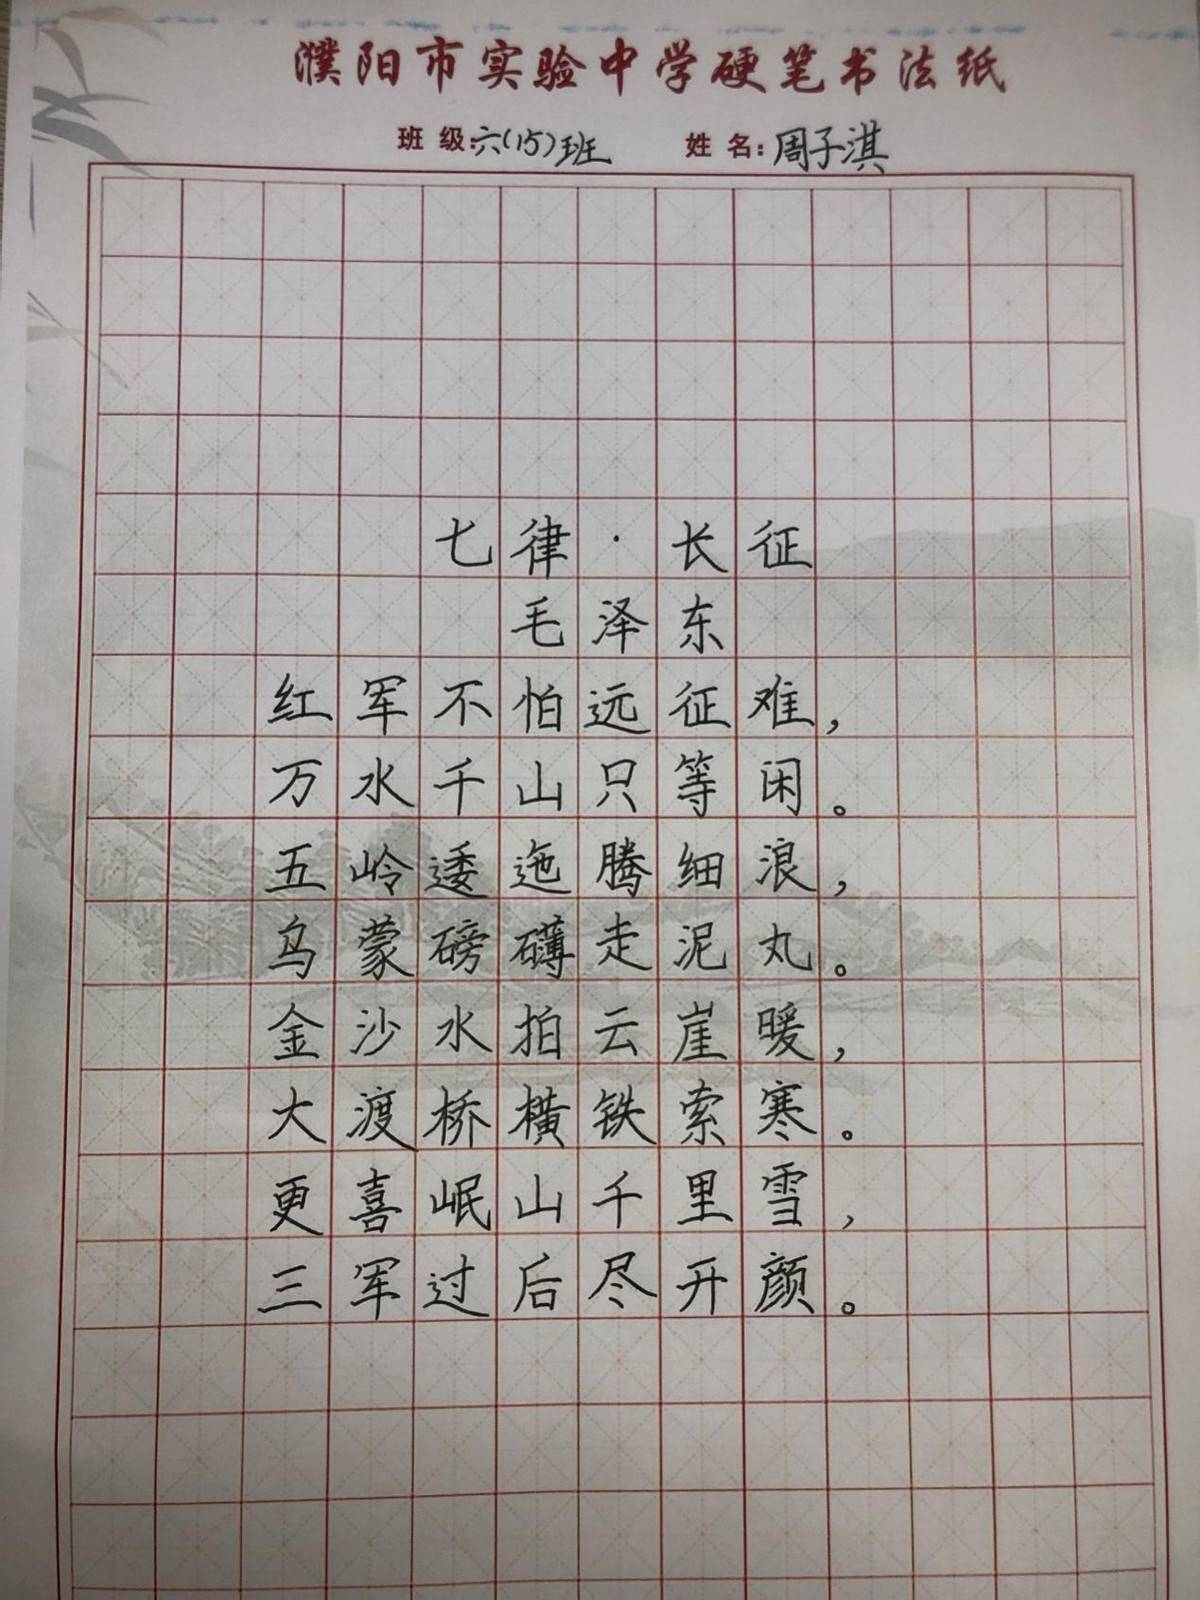 濮阳市实验中学硬笔书法纸
班级:六(15)班 姓名:周子淇
七律·长征
毛泽东
红军不怕远征难,
万水千山只等闲。
五岭逶迤腾细浪,
乌蒙磅礴走泥丸。
金沙水拍云崖暖,
大渡桥横铁索寒。
更喜岷山千里雪,
三军过后尽开颜。